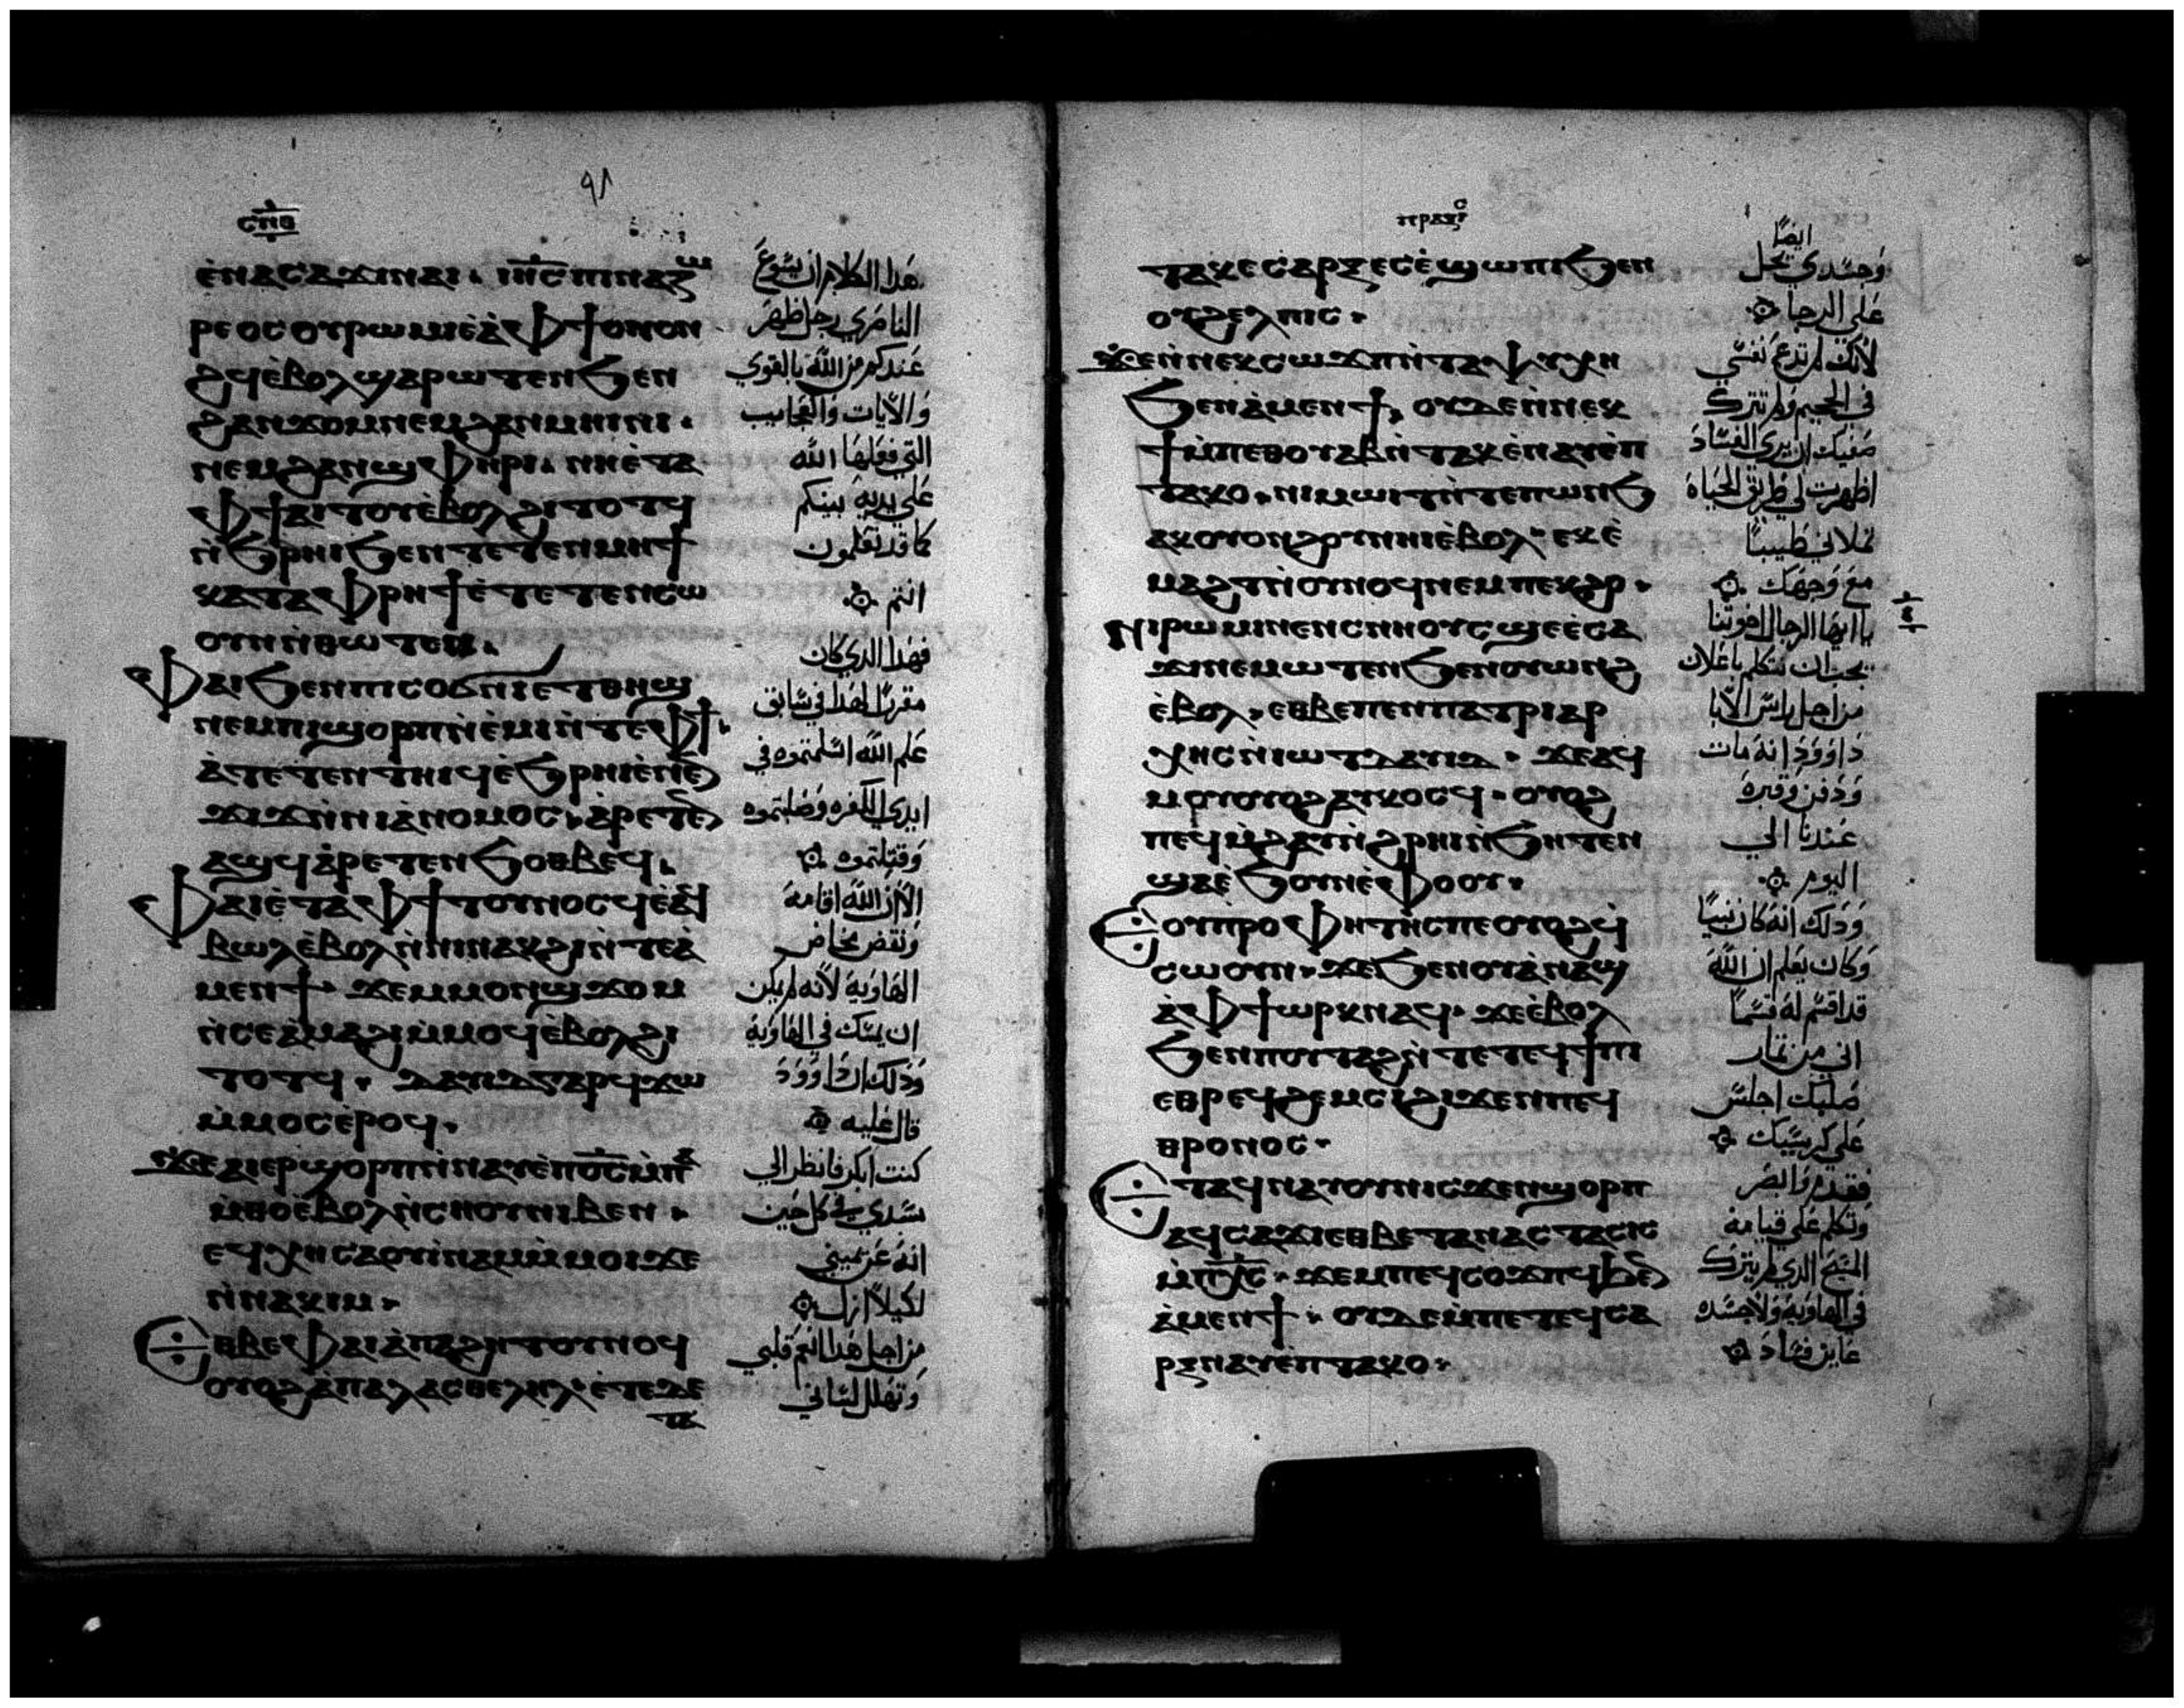 ٩٨
ⲥⲡⲑ
ⲉ̀ⲛⲁⲥⲁϫⲓⲛⲁⲓ. ⲓⲏ̅ⲥ̅ⲡⲓⲛⲁⲍⲱ
ⲣⲉⲟⲥⲟⲩⲣⲱⲙⲓⲉ̀ⲁ̀ⲫϯⲟⲩⲟⲛ
ϩϥⲉ̀ⲃⲟⲗϣⲁⲣⲱⲧⲉⲛϧⲉⲛ
ϩⲁⲛϫⲟⲙⲛⲉⲙϩⲁⲛⲙⲏⲓⲛⲓ.
ⲛⲉⲙϩⲁⲛϣⲫⲏⲣⲓ. ⲛⲏⲉ̀ⲧⲁ
ⲫϯⲁⲓⲧⲟⲩⲉ̀ⲃⲟⲗϩⲓⲧⲟⲧϥ
ⲛ̀ϧⲣⲏⲓϧⲉⲛⲧⲉⲧⲉⲛⲙⲏϯ
ⲕⲁⲧⲁⲫⲣⲏϯⲉ̀ⲧⲉⲧⲉⲛⲥⲱ
ⲟⲩⲛⲛ̀ⲑⲱⲧⲉⲛ.
ⲫⲁⲓϧⲉⲛⲡⲓⲥⲟϭⲛⲓⲉⲧⲑⲏϣ
ⲛⲉⲙⲡⲓϣⲟⲣⲡⲛ̀ⲉ̀ⲙⲓⲛ̀ⲧⲉⲫϯ.
ⲁ̀ⲧⲉⲧⲉⲛⲧⲏⲓϥⲉ̀ϧⲣⲏⲓⲉ̀ⲛⲉⲛ
ϫⲓϫⲛ̀ⲛⲓⲁ̀ⲛⲟⲙⲟⲥ. ⲁ̀ⲣⲉⲧⲉⲛ
ⲁϣϥⲁ̀ⲣⲉⲧⲉⲛϧⲟⲑⲃⲉϥ.
ⲫⲁⲓⲉ̀ⲧⲁⲫϯⲧⲟⲩⲛⲟⲥϥⲉ̀ⲁϥ
ⲃⲱⲗⲉ̀ⲃⲟⲗⲛ̀ⲛⲓⲛⲁⲕϩⲓⲛ̀ⲧⲉⲁ̀
ⲙⲉⲛϯ. ϫⲉⲙⲙⲟⲛϣϫⲟⲙ
ⲛ̀ⲥⲉⲁ̀ⲙⲁϩⲓⲙ̀ⲙⲟϥⲉ̀ⲃⲟⲗϩⲓ
ⲧⲟⲧϥ. ⲇⲁⲩⲓⲇⲅⲁⲣϥϫⲱ
ⲙ̀ⲙⲟⲥⲉ̀ⲣⲟϥ.
ϫⲉⲁⲓⲉⲣϣⲟⲣⲡⲛ̀ⲛⲁⲩⲉ̀ⲡⲟ̅ⲥ̅ⲙ̀ⲡⲁ
ⲙ̀ⲑⲟⲉ̀ⲃⲟⲗⲛ̀ⲥⲛⲟⲩⲛⲓⲃⲉⲛ.
ⲉϥⲭⲏⲥⲁⲟⲩⲓ̀ⲛⲁⲙⲙ̀ⲙⲟⲓϫⲉ
ⲛ̀ⲛⲁⲕⲓⲙ.
ⲉⲑⲃⲉⲫⲁⲓⲁ̀ⲡⲁϩⲏⲧⲟⲩⲛⲟϥ
ⲟⲩⲟϩⲁ̀ⲡⲁⲗⲁⲥⲑⲉⲗⲏⲗ. ⲉ̀ⲧⲉⲇⲉ
ⲧⲁ
هذا الكلام ان يسوع
الناصري رجل ظهر
عندكم من الله بالقوي
والايات والعجايب
التي فعلها الله
علي يديه بينكم
كما قد تعلمون
انتم
فهذا الذي كان
مقررًا لهذا في سابق
علم الله اسلمتموه في
ايدي الكفره وصلبتموه
وقتلتموه
الان الله اقامه
ونقض مخاض
الهاوية لانه لم يكن
ان يمسك في الهاوية
وذلك ان داوود
قال عليه
كنت ابكر فانظر الي
سيدي في كل حين
انه عن يميني
لكيلا ازل
من اجل هذا انتم قلبي
وتهلل لساني
ⲡⲣⲁⲝⲓⲥ
ⲧⲁⲕⲉⲥⲁⲣⲝⲉⲥⲉ̀ϣⲱⲡⲓϧⲉⲛ
ⲟⲩϩⲉⲗⲡⲓⲥ.
ϫⲉⲛ̀ⲛⲉⲕⲥⲱϫⲡⲛ̀ⲧⲁⲯⲩⲭⲏ
ϧⲉⲛⲁ̀ⲙⲉⲛϯ. ⲟⲩⲇⲉⲛ̀ⲛⲉⲕ
ϯⲙ̀ⲡⲉⲑⲟⲩⲁⲃⲛ̀ⲧⲁⲕⲉ̀ⲛⲁⲩⲉ̀ⲡ
ⲧⲁⲕⲟ. ⲛⲓⲙⲱⲓⲧⲛ̀ⲧⲉⲡⲱⲛϧ
ⲁⲕⲟⲩⲟⲛϩⲟⲩⲛⲏⲓⲉ̀ⲃⲟⲗ. ⲉⲕⲉ̀
ⲙⲁϩⲧⲛ̀ⲟⲩⲛⲟϥⲛⲉⲙⲡⲉⲕϩⲣ.
ⲛⲓⲣⲱⲙⲓⲛⲉⲛⲥⲛⲏⲟⲩⲥϣⲉⲉ̀ⲥⲁ
ϫⲓⲛⲉⲙⲱⲧⲉⲛϧⲉⲛⲟⲩⲱⲛϩ
ⲉ̀ⲃⲟⲗ. ⲉⲑⲃⲉⲡⲉⲛⲡⲁⲧⲣⲓⲁⲣ
ⲭⲏⲥⲛ̀ⲓⲱⲧⲇⲁⲩⲓⲇ. ϫⲉⲁϥ
ⲙⲟⲩⲟⲩⲟϩⲁⲩⲕⲟⲥϥ. ⲟⲩⲟϩ
ⲡⲉϥⲙ̀ϩⲁⲩⲛ̀ϩⲣⲏⲓⲛ̀ϧⲏⲧⲉⲛ
ϣⲁⲉ̀ϧⲟⲩⲛⲉ̀ⲫⲟⲟⲩ.
ⲉⲟⲩⲡⲣⲟⲫⲏⲧⲏⲥⲡⲉⲟⲩⲟϩϥ̀
ⲥⲱⲟⲩⲛ. ϫⲉϧⲉⲛⲟⲩⲁ̀ⲛⲁϣ
ⲁ̀ⲫϯⲱⲣⲕⲛⲁϥ. ϫⲉⲉ̀ⲃⲟⲗ
ϧⲉⲛⲡⲟⲩⲧⲁϩⲛ̀ⲧⲉⲧⲉϥϯⲡⲓ
ⲉⲑⲣⲉϥϩⲉⲙⲥⲓϩⲓϫⲉⲛⲡⲉϥ
ⲑⲣⲟⲛⲟⲥ.
ⲉⲧⲁϥⲛⲁⲩⲟⲩⲛⲓⲥϫⲉⲛϣⲟⲣⲡ
ⲁϥⲥⲁϫⲓⲉⲑⲃⲉⲧⲁⲛⲁⲥⲧⲁⲥⲓⲥ
ⲙ̀ⲡⲭ̅ⲥ̅. ϫⲉⲙⲡⲉϥⲥⲟϫⲡϥϧⲉⲛ
ⲁ̀ⲙⲉⲛϯ. ⲟⲩⲇⲉⲙ̀ⲡⲉⲧⲉϥⲥⲁ
ⲣⲝⲛⲁⲩⲉ̀ⲡⲧⲁⲕⲟ.
ايضًا
وجسدي يحل
علي الرجا
لانك لم تدع نفسي
في الجحيم ولم تترك
صفيك ان يري الفساد
اظهرت لي طريق الحياة
تملاني طيبًا
مع وجهك
يا ايها الرجال اخوتنا
يجب ان نتكلم باعلان
من اجل راس الابا
داوود انه مات
ودفن وقبره
عندنا الي
اليوم
وذلك انه كان نبيًا
وكان يعلم ان الله
قد اقسم له قسمًا
اني من ثمار
صلبك اجلس
علي كرسيك
فقدم وابصر
وتكلم علي قيامة
المسيح الذي لم يترك
في الهاوية ولا جسده
عاين فساد